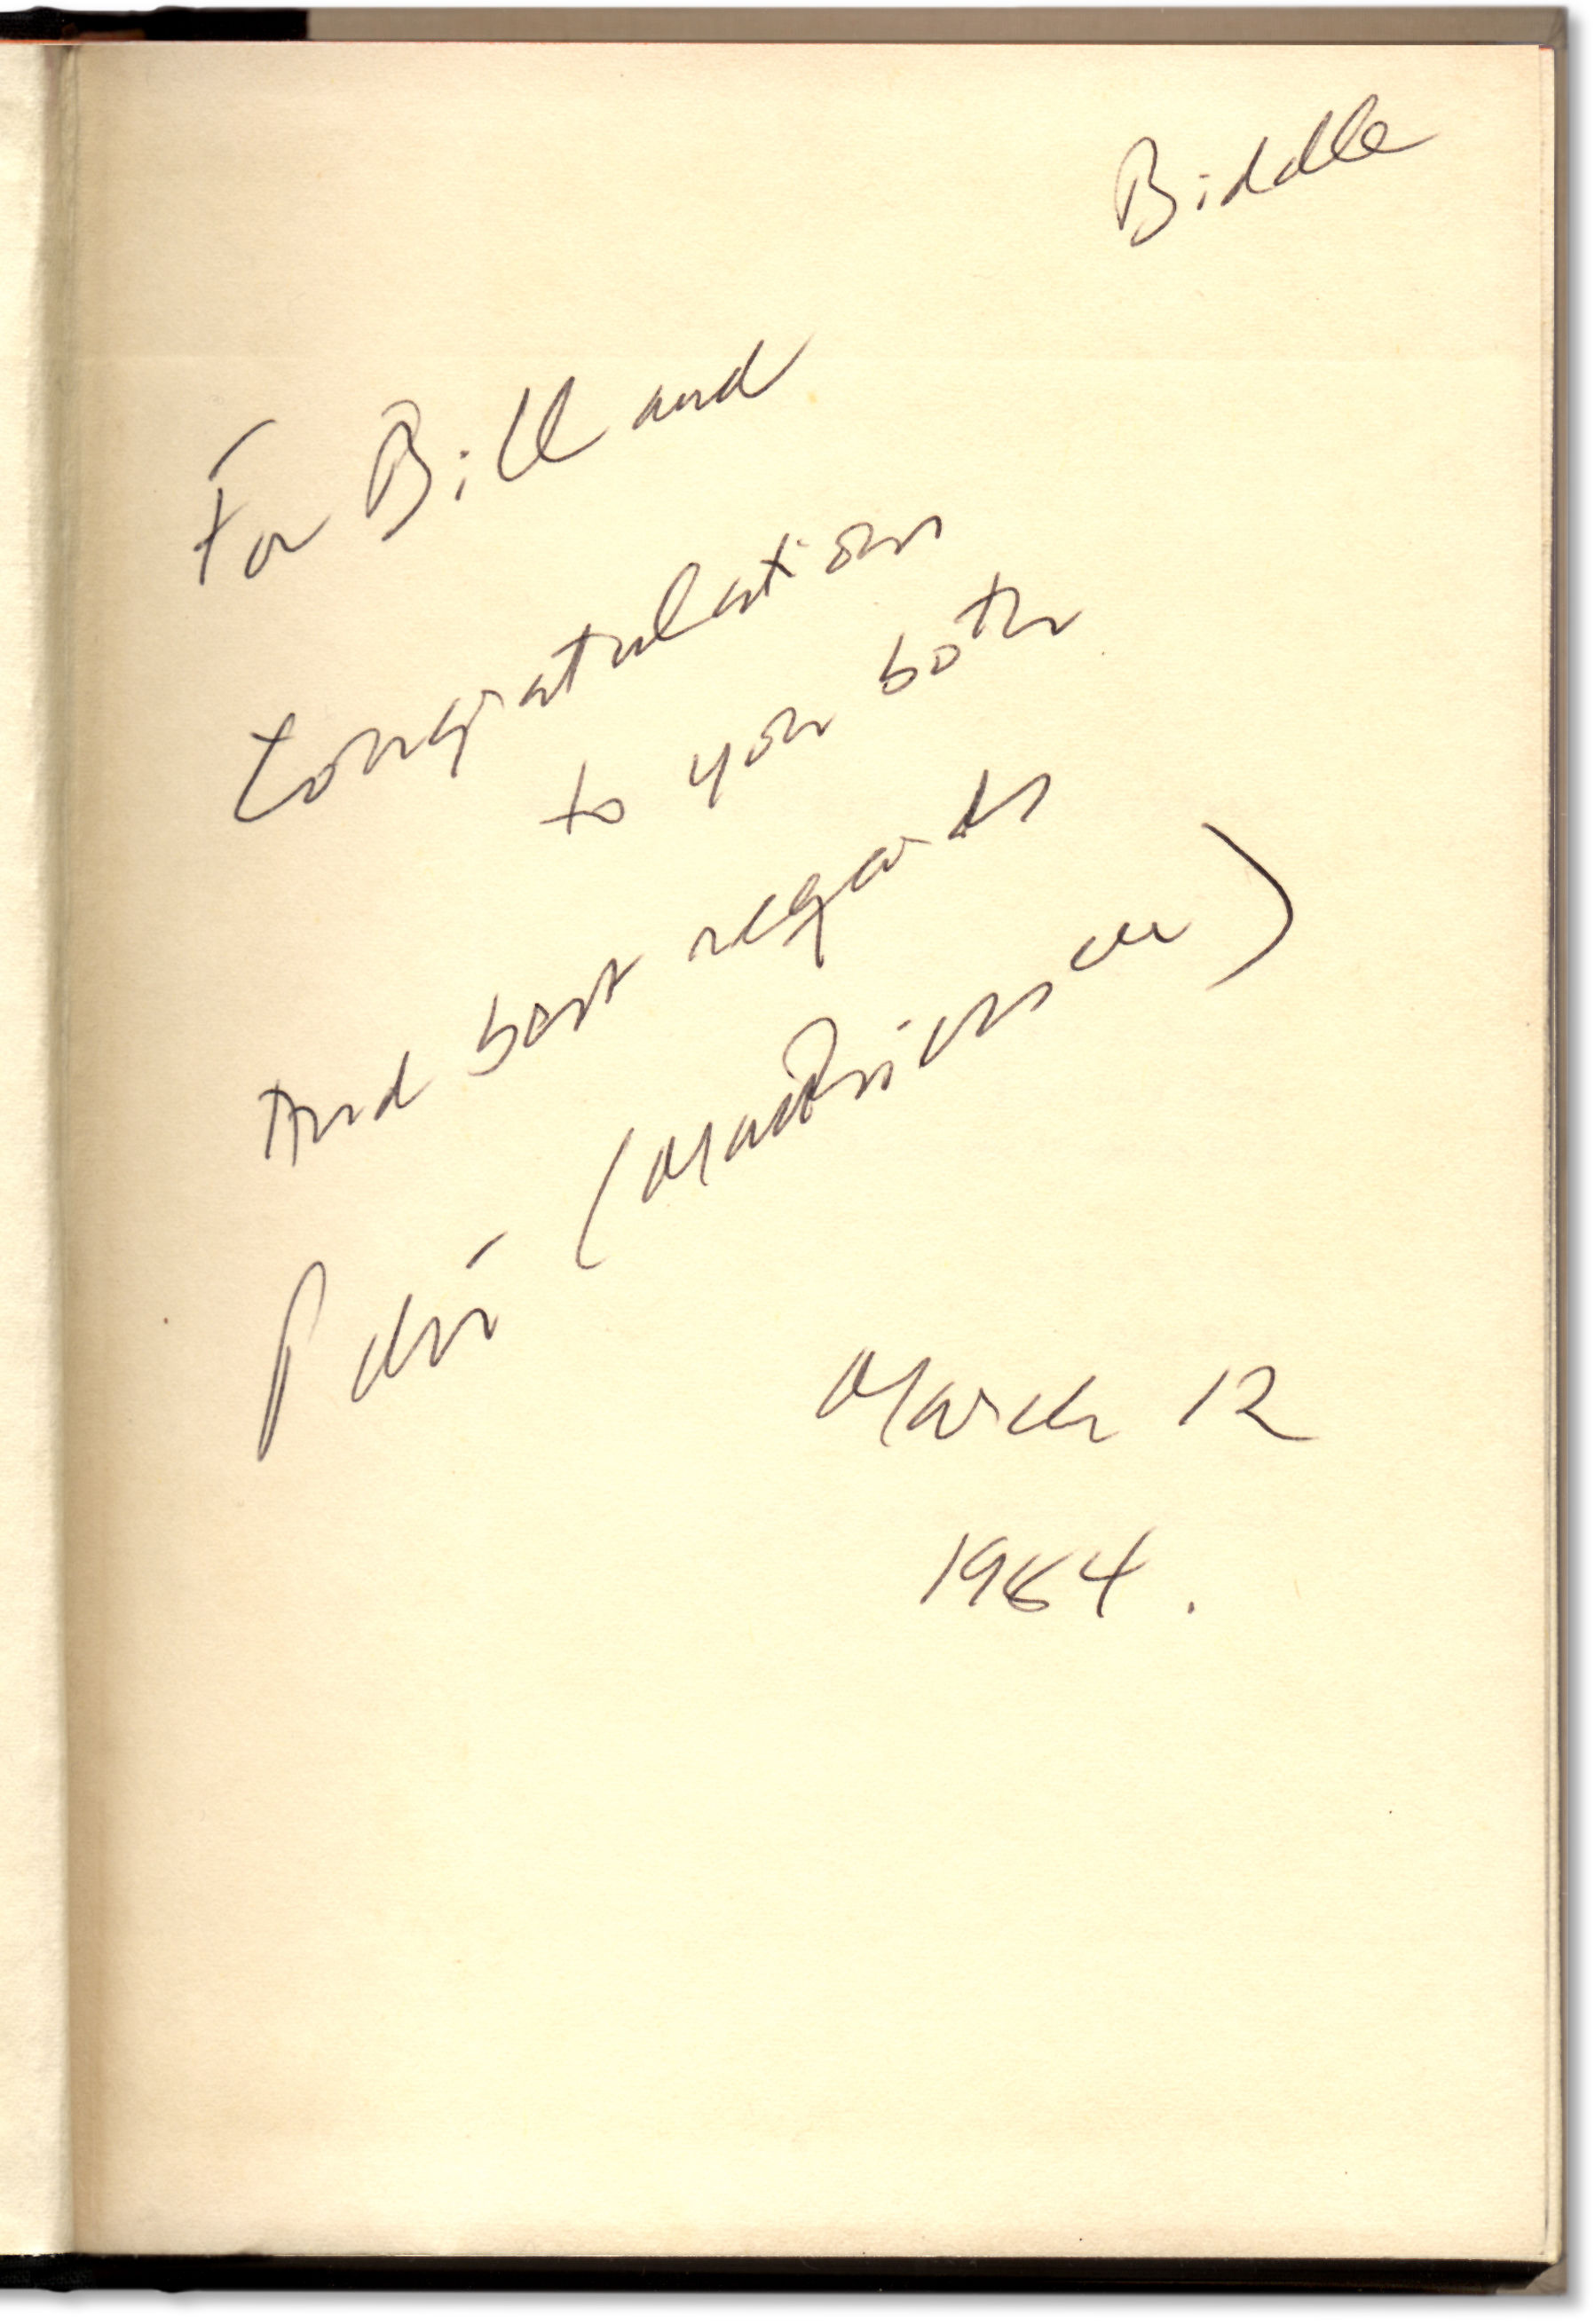 Biddle
For Bill and
Congratulations
to you both
And best regards
Peter (Matthiessen)
March 12